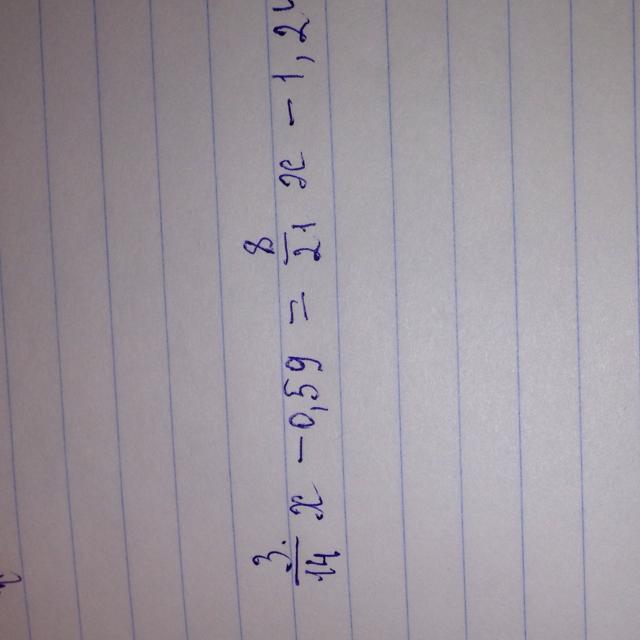 3/14 x - 0,59 = 8/21 x - 1,2